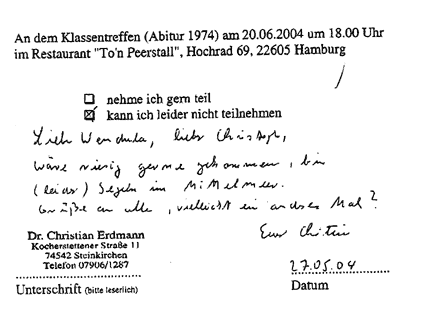 An dem Klassentreffen (Abitur 1974) am 20.06.2004 um 18.00 Uhr
im Restaurant "To'n Peerstall", Hochrad 69, 22605 Hamburg
nehme ich gern teil
kann ich leider nicht teilnehmen
Liebe Wendula, lieber Christoph,
wäre riesig gerne gekommen, bin
(leider) Segeln im Mittelmeer.
Grüße an alle, vielleicht ein andres Mal?
Euer Christian
Dr. Christian Erdmann
Kocherstettener Straße 11
74542 Steinkirchen
Telefon 07906/1287
27.05.04
Unterschrift (bitte leserlich)
Datum